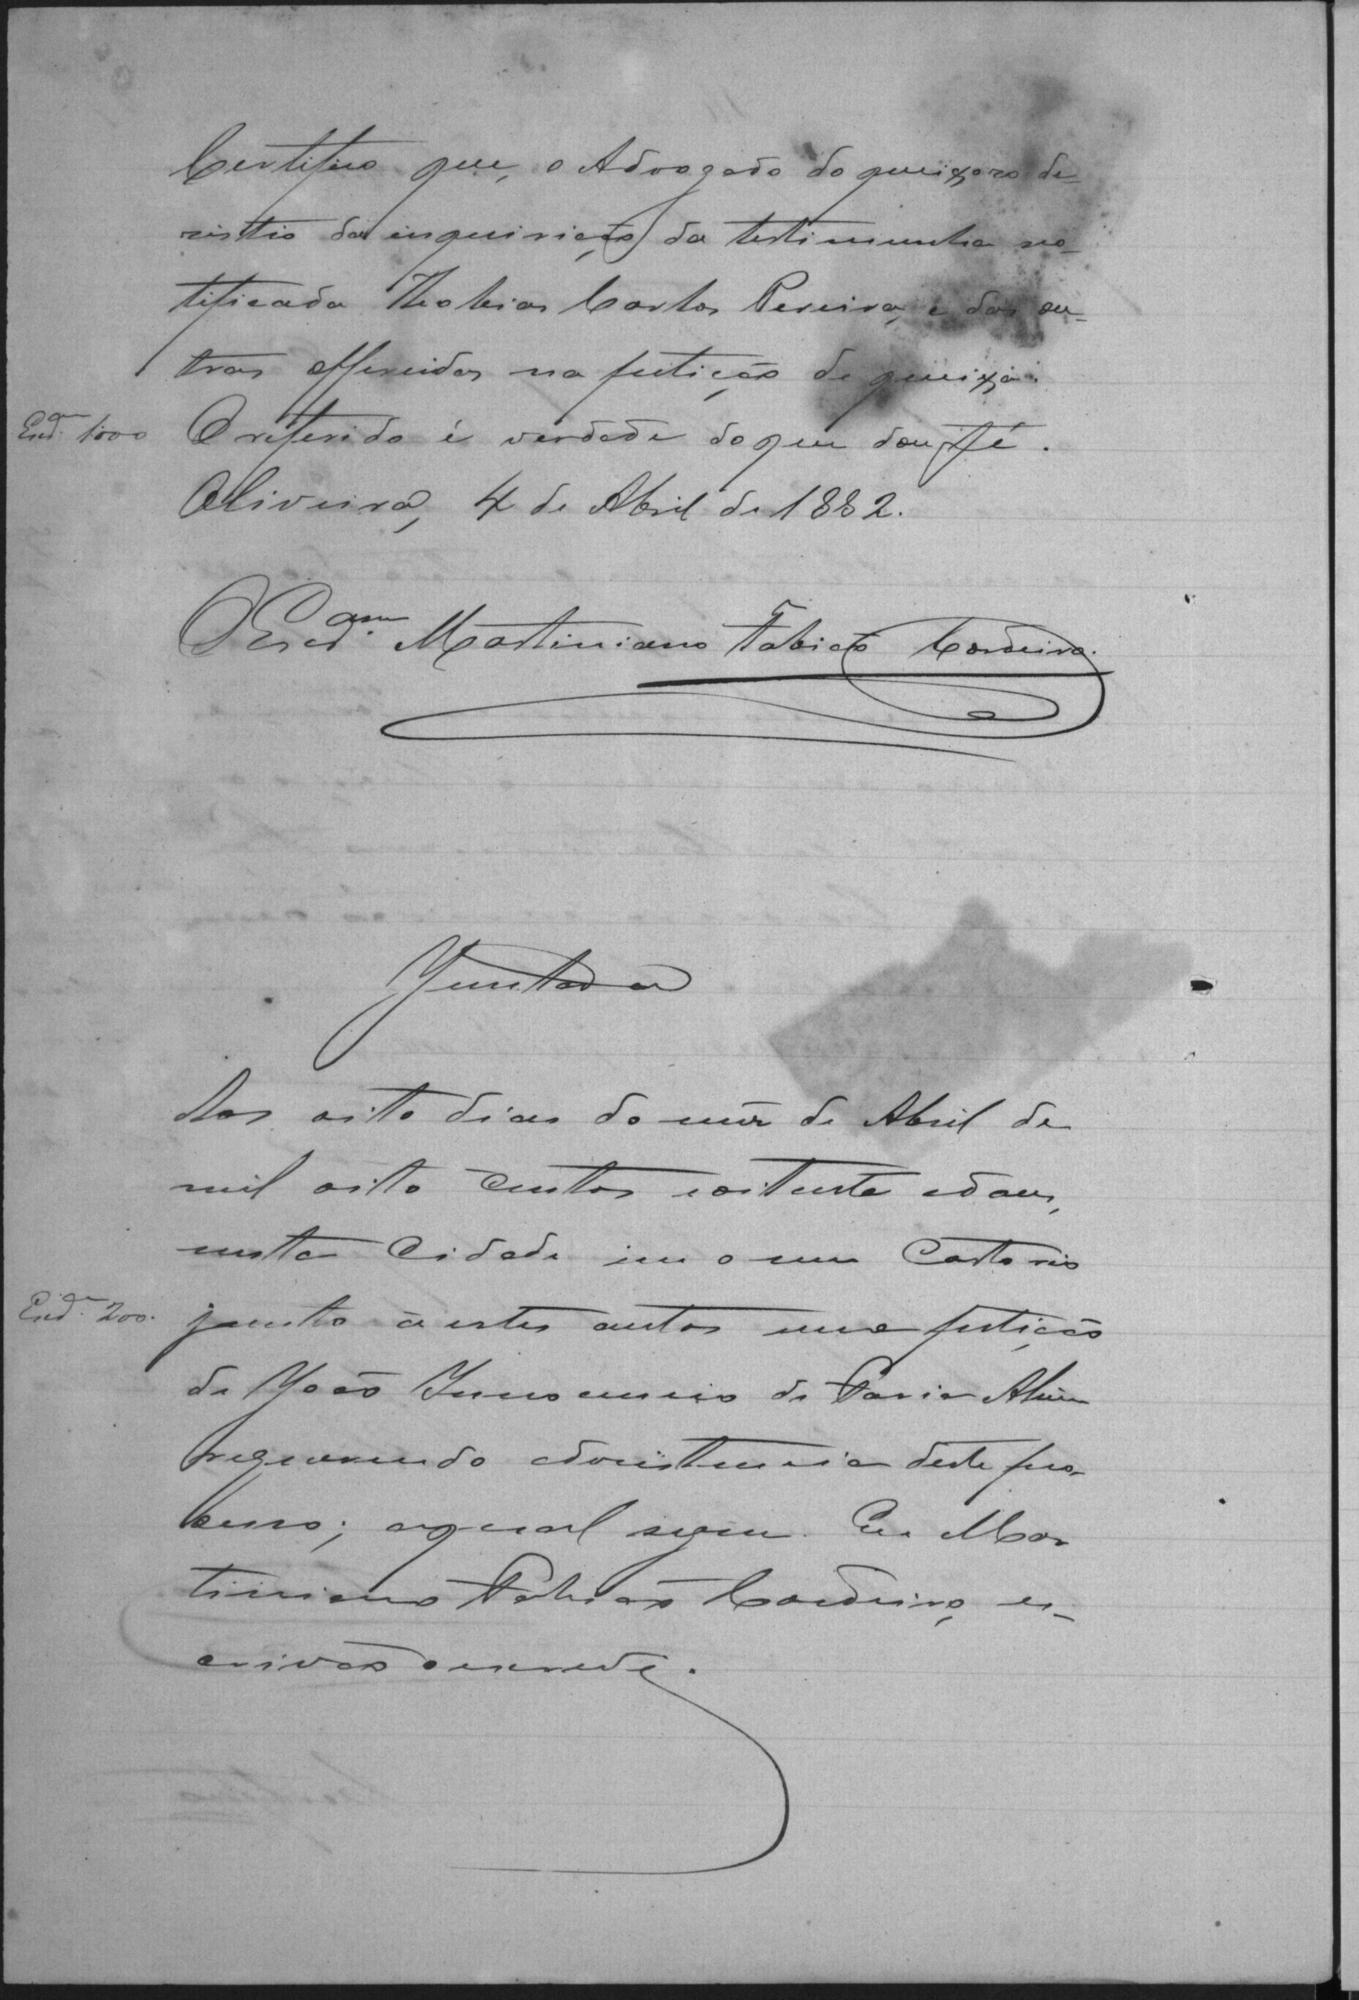 Certifico que, o Advogado do queixozo de-
zistio da inquirição da testimunha no-
tificada Thobias Carlos Pereira, e das ou-
tras offerecidas na petição de queixa.
O referido é verdade do que dou fé.
Oliveira, 4 de Abril de 1882.
O Escr.am Martiniano Fabião Cordeiro.
1000
Juntada
Aos oito dias do mez de Abril de
mil oito centos e oitenta e dous,
nesta Cidade em o meu Cartorio
junto á estes autos uma petição
200
de João de Faria
requerendo a desistencia deste pro-
cesso; a qual segue. Eu Mar
tiniano Fabião Cordeiro, es-
crivão o escrevi.